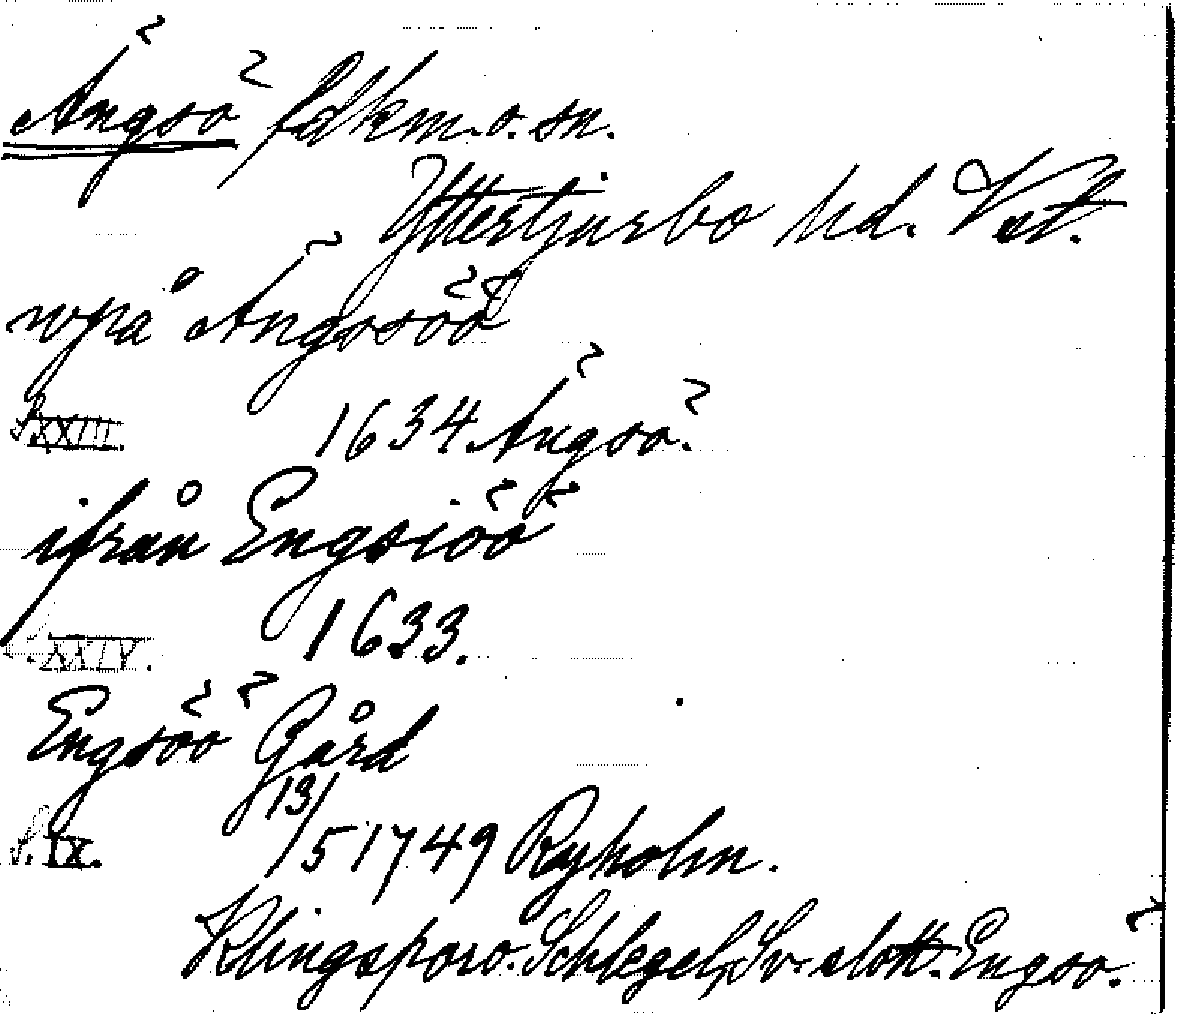 Ängsö fdkm. o. sn.
Yttertjurbo hd. Vstl.
wpå Ängssöö
S. XXIII. 1634 Ängsö.
ifrån Engsiöö
S. XXIV. 1633.
Engsöö Gård
S. IX. 13/5 1749 Ryholm.
Klingspor o. Schlegel, Sv. slott. Engsö.